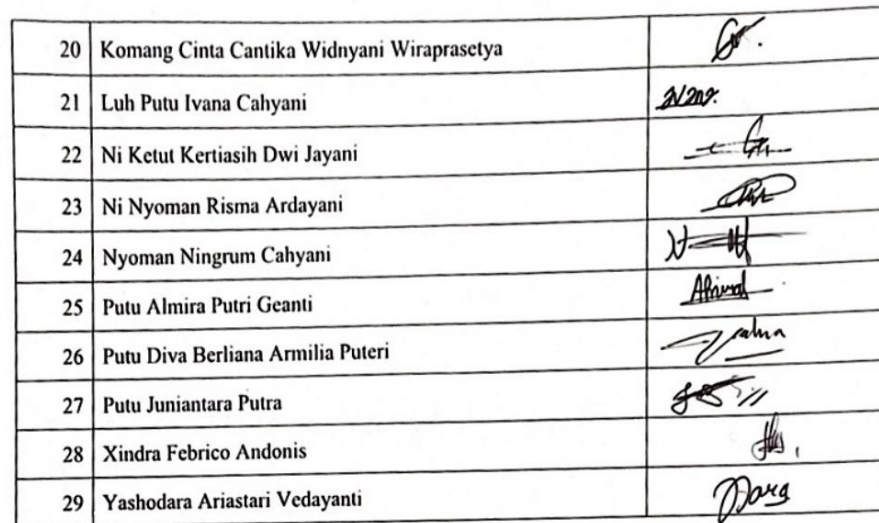 20 Komang Cinta Cantika Widnyani Wiraprasetya
21 Luh Putu Ivana Cahyani
22 Ni Ketut Kertiasih Dwi Jayani
23 Ni Nyoman Risma Ardayani
24 Nyoman Ningrum Cahyani
25 Putu Almira Putri Geanti
26 Putu Diva Berliana Armilia Puteri
27 Putu Juniantara Putra
28 Xindra Febrico Andonis
29 Yashodara Ariastari Vedayanti